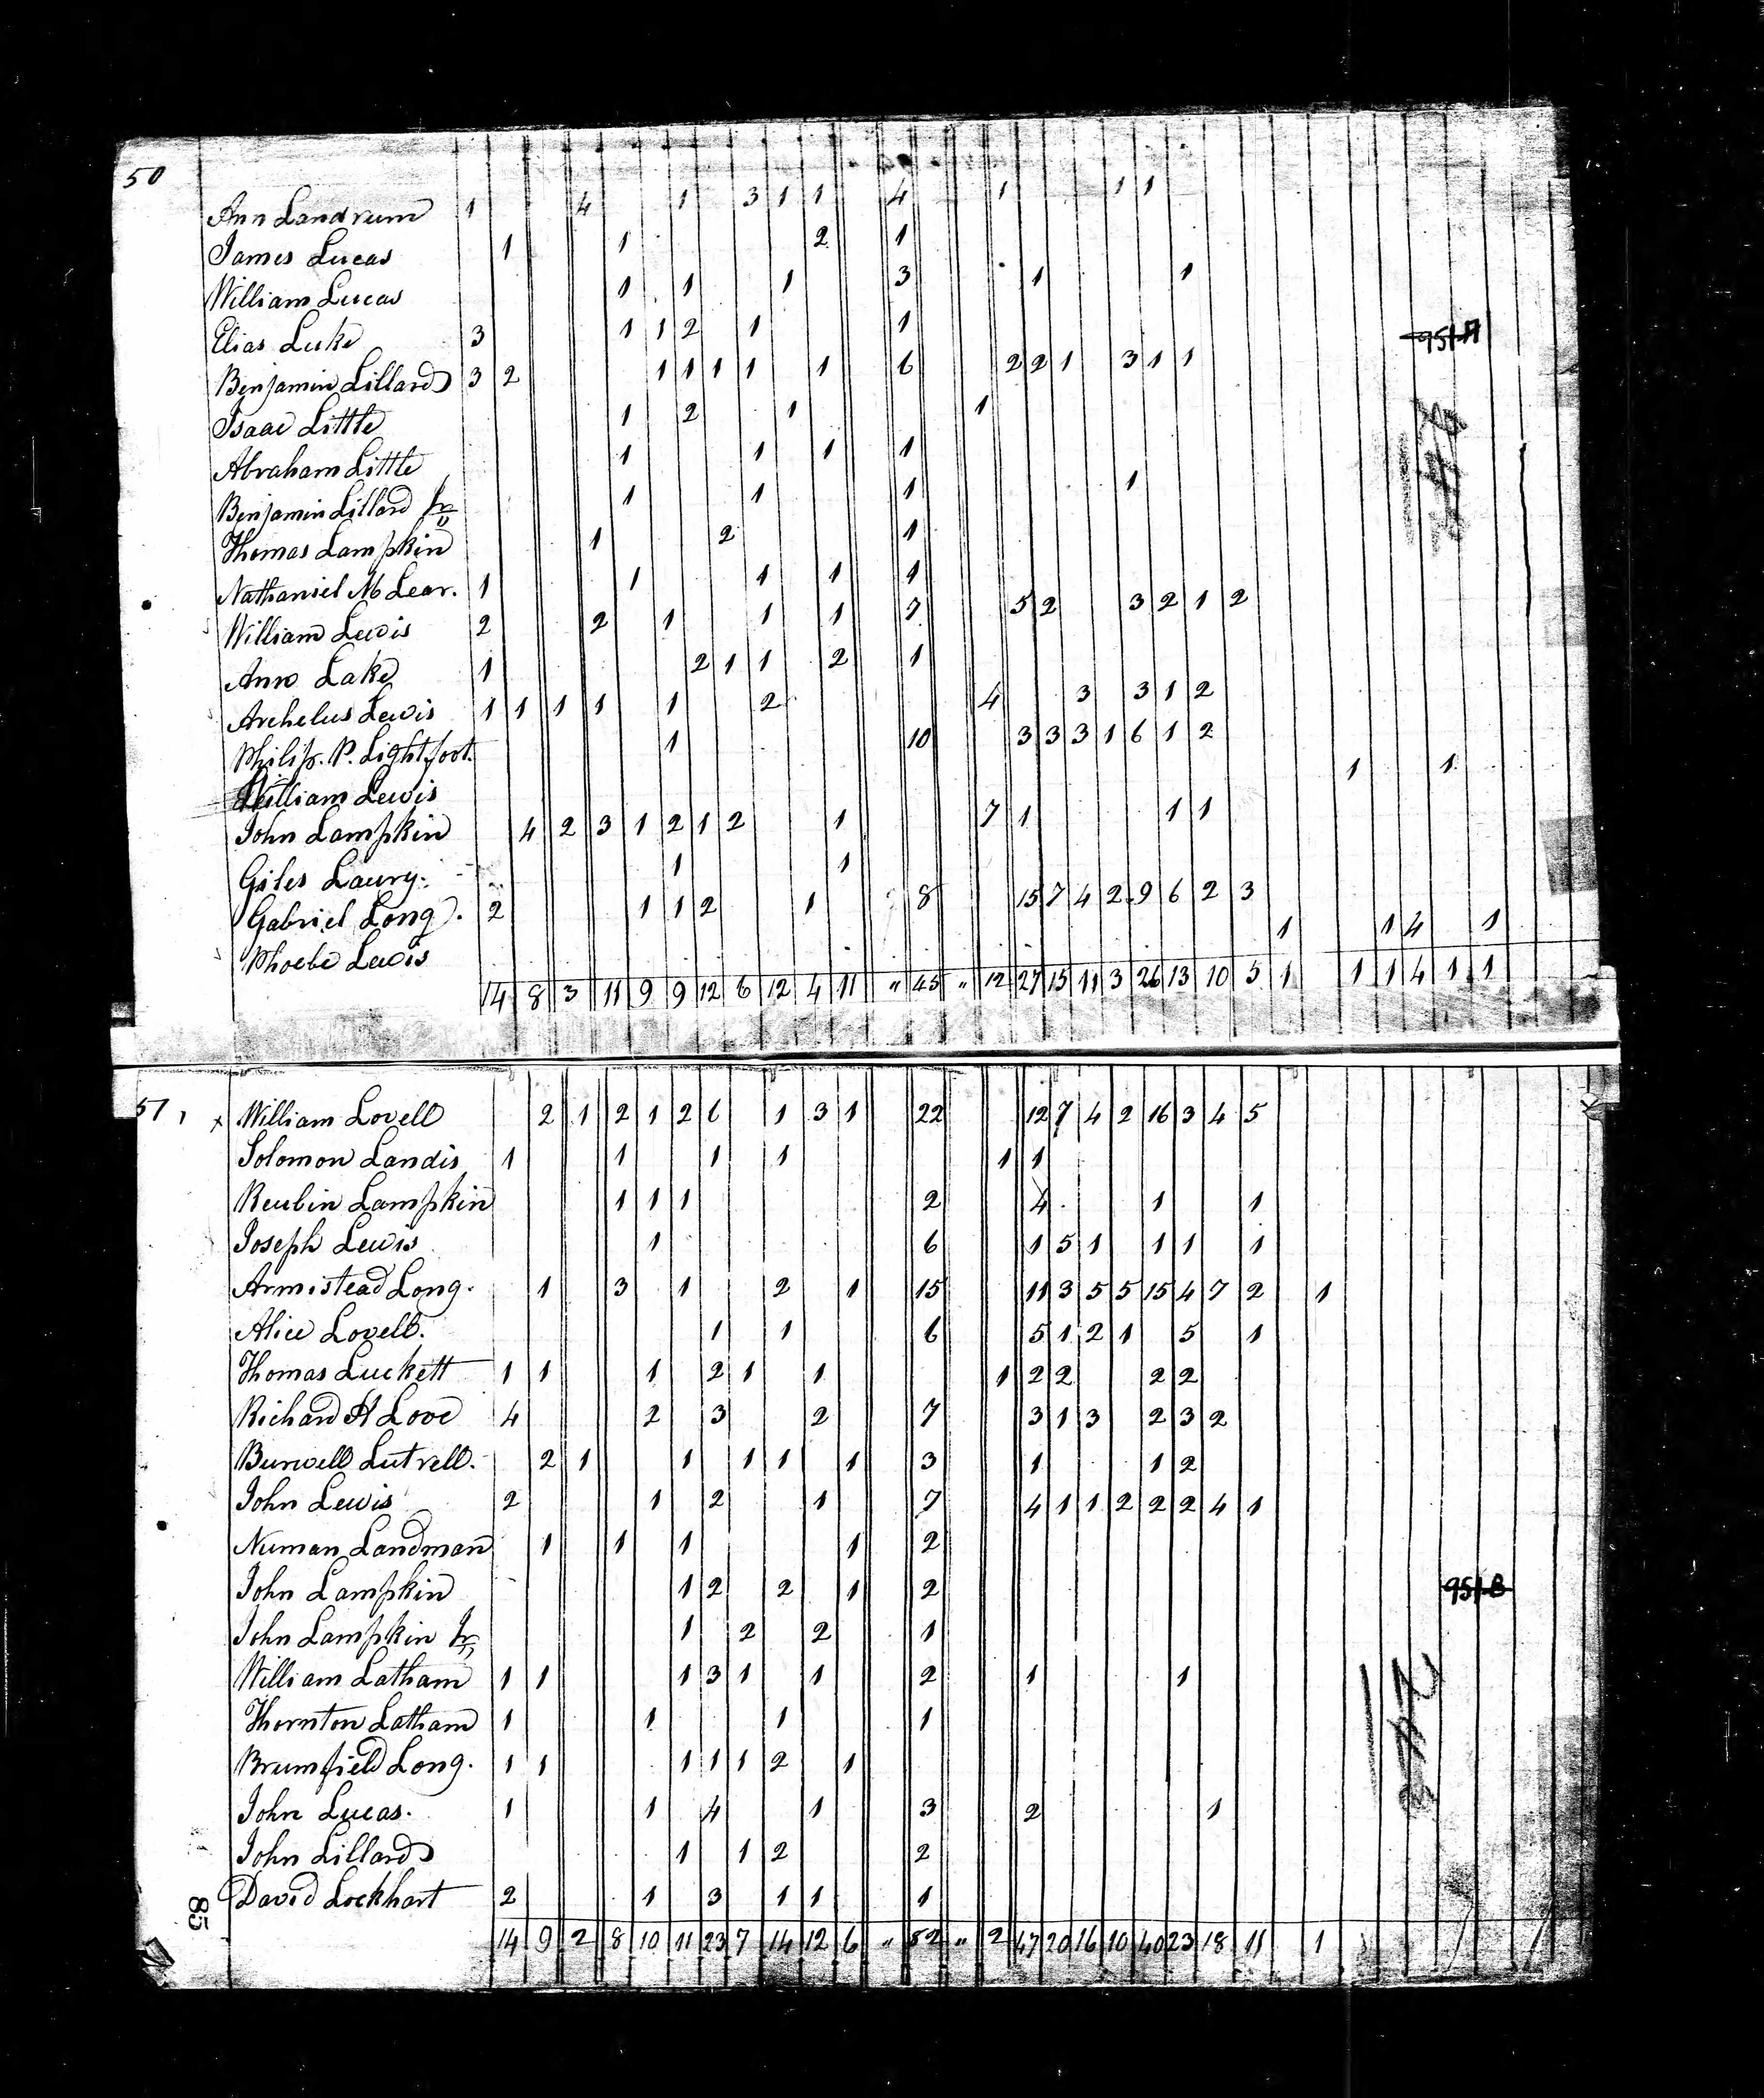 50
Ann Landrum 1 4 1 3 1 1 4 1 1 1
James Lucas 1 1 2 1
William Lucas 1 1 1 3 1 1
Elias Luke 3 1 1 2 1 1
951A
Benjamin Lillard 3 2 1 1 1 1 1 6 2 2 1 3 1 1
Isaac Little 1 2 1 1
Abraham Little 1 1 1 1
Benjamin Lillard Jr 1 1 1 1
Thomas Lampkin 1 2 1
Nathaniel M Lear. 1 1 1 1 1
William Lewis 2 2 1 1 1 7 5 2 3 2 1 2
Ann Lake 1 2 1 1 2 1
Archelus Lewis 1 1 1 1 1 2 4 3 3 1 2
Philip. P. Lightfoot. 1 10 3 3 3 1 6 1 2
William Lewis 1 1
John Lampkin 4 2 3 1 2 1 2 1 7 1 1 1
Giles Laury. 1 1
Gabriel Long. 2 1 1 2 1 8 15 7 4 2 9 6 2 3
Phoebe Lewis 1 1 4 1
14 8 3 11 9 9 12 6 12 4 11 " 45 " 12 27 15 11 3 26 13 10 5 1 1 1 4 1 1
51, x William Lovell 2 1 2 1 2 6 1 3 1 22 12 7 4 2 16 3 4 5
Solomon Landis 1 1 1 1 1 1
Reubin Lampkin 1 1 1 2 4 1 1
Joseph Lewis 1 6 1 5 1 1 1 1
Armistead Long. 1 3 1 2 1 15 11 3 5 5 15 4 7 2 1
Alice Lovell. 1 1 6 5 1 2 1 5 1
Thomas Luckett 1 1 1 2 1 1 1 2 2 2 2
Richard H Love 4 2 3 2 7 3 1 3 2 3 2
Burwell Lutrell. 2 1 1 1 1 1 3 1 1 2
John Lewis 2 1 2 1 7 4 1 1 2 2 2 4 1
Numan Landman 1 1 1 1 2
John Lampkin 1 2 2 1 2
951B
John Lampkin Jr 1 2 2 1
William Latham 1 1 1 3 1 1 2 1 1
Thornton Latham 1 1 1 1
Brumfield Long. 1 1 1 1 1 2 1
John Lucas. 1 1 4 1 3 2 1
John Lillard 1 1 2 2
David Lockhart 2 1 3 1 1 1
85
14 9 2 8 10 11 23 7 14 12 6 " 82 " 2 47 20 16 10 40 23 18 11 1